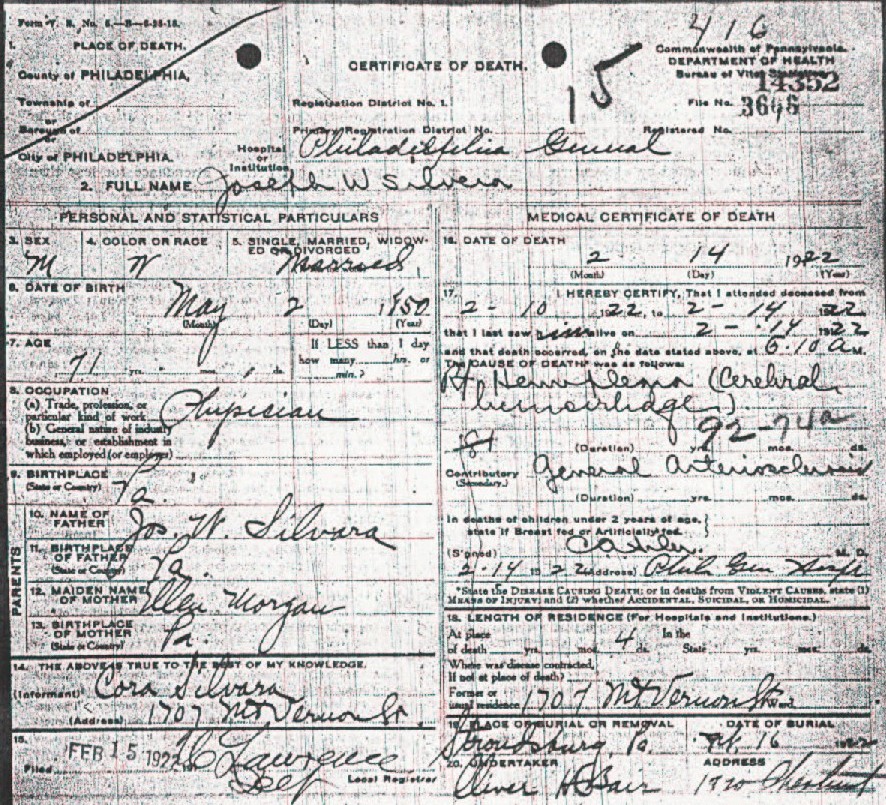 Form V. S. No. 5.—B—6-25-18.
416
1. PLACE OF DEATH.
County of PHILADELPHIA,
Township of
or
Borough of
or
City of PHILADELPHIA.
CERTIFICATE OF DEATH.
Registration District No. 1.
15
Primary Registration District No.
Commonwealth of Pennsylvania.
DEPARTMENT OF HEALTH
Bureau of Vital Statistics
14352
File No. 3666
Registered No.
Hospital or Institution Philadelphia General
2. FULL NAME Joseph W Silvera
PERSONAL AND STATISTICAL PARTICULARS
3. SEX M
4. COLOR OR RACE W
5. SINGLE, MARRIED, WIDOWED OR DIVORCED Married
6. DATE OF BIRTH May 2 1850
(Month) (Day) (Year)
7. AGE 71 yrs. mos. ds.
If LESS than 1 day
how many hrs. or
min.?
8. OCCUPATION
(a) Trade, profession, or
particular kind of work Physician
(b) General nature of industry
business, or establishment in
which employed (or employer)
9. BIRTHPLACE
(State or Country) Pa.
PARENTS
10. NAME OF
FATHER Jos. W. Silvara
11. BIRTHPLACE
OF FATHER
(State or Country) Pa.
12. MAIDEN NAME
OF MOTHER Ellen Morgan
13. BIRTHPLACE
OF MOTHER
(State or Country) Pa.
14. THE ABOVE IS TRUE TO THE BEST OF MY KNOWLEDGE.
(Informant) Cora Silvara
(Address) 1707 Mt Vernon St.
15.
Filed FEB 15 1922 Lawrence
Local Registrar
MEDICAL CERTIFICATE OF DEATH
16. DATE OF DEATH
2 14 1922
(Month) (Day) (Year)
17. I HEREBY CERTIFY, That I attended deceased from
2-10 1922, to 2-14 1922
that I last saw him alive on 2-14 1922
and that death occurred, on the date stated above, at 6.10 a M.
The CAUSE OF DEATH* was as follows:
Hemiplegia (Cerebral
hemorrhage).
92-74a
(Duration) yrs. mos. ds.
Contributory General Arteriosclerosis
(Secondary.)
(Duration) yrs. mos. ds.
In deaths of children under 2 years of age,
state if Breast fed or Artificially fed.
(Signed) M. D.
2-14 1922 (Address) Phila Gen Hosp
*State the DISEASE CAUSING DEATH; or in deaths from VIOLENT CAUSES, state (1)
MEANS OF INJURY; and (2) whether ACCIDENTAL, SUICIDAL, OR HOMICIDAL.
18. LENGTH OF RESIDENCE (For Hospitals and Institutions.)
At place In the
of death yrs. mos. 4 ds. State yrs. mos. ds.
Where was disease contracted,
If not at place of death?
Former or
usual residence 1707 Mt Vernon St Ward
19. PLACE OF BURIAL OR REMOVAL DATE OF BURIAL
Stroudsburg Pa Feb. 16 1922
20. UNDERTAKER ADDRESS
Oliver H Bair 1720 Chestnut